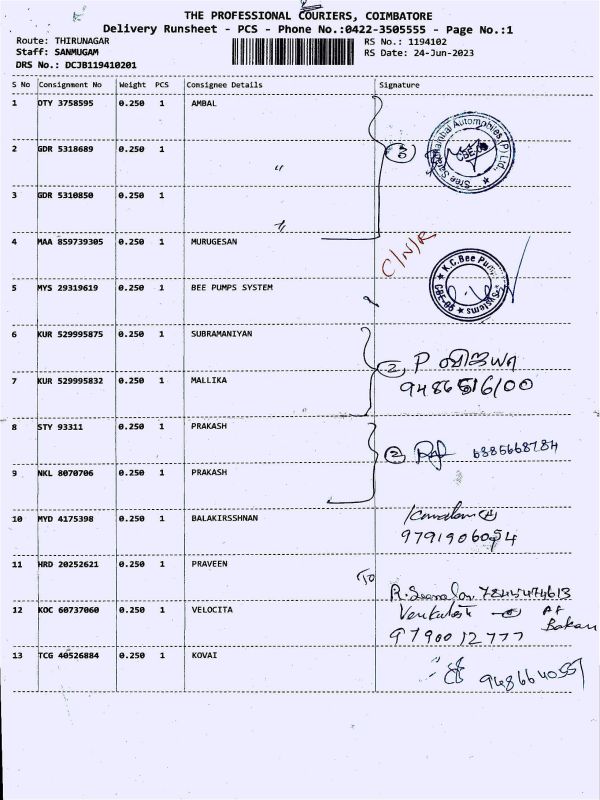 THE PROFESSIONAL COURIERS, COIMBATORE
Delivery Runsheet - PCS - Phone No.:0422-3505555 - Page No.:1
Route: THIRUNAGAR RS No.: 1194102
Staff: SANMUGAM RS Date: 24-Jun-2023
DRS No.: DCJB119410201
S No Consignment No Weight PCS Consignee Details Signature
1 OTY 3758595 0.250 1 AMBAL
2 GDR 5318689 0.250 1 〃 3
3 GDR 5310850 0.250 1 〃
4 MAA 859739305 0.250 1 MURUGESAN C/N/R
5 MYS 29319619 0.250 1 BEE PUMPS SYSTEM K.C.Bee Pump Systems CBE-05
6 KUR 529995875 0.250 1 SUBRAMANIYAN
2 P விஜயா
7 KUR 529995832 0.250 1 MALLIKA
8 STY 93311 0.250 1 PRAKASH
2
9 NKL 8070706 0.250 1 PRAKASH
10 MYD 4175398 0.250 1 BALAKIRSSHNAN
11 HRD 20252621 0.250 1 PRAVEEN
12 KOC 60737060 0.250 1 VELOCITA Venkatesh
9790012777
13 TCG 40526884 0.250 1 KOVAI